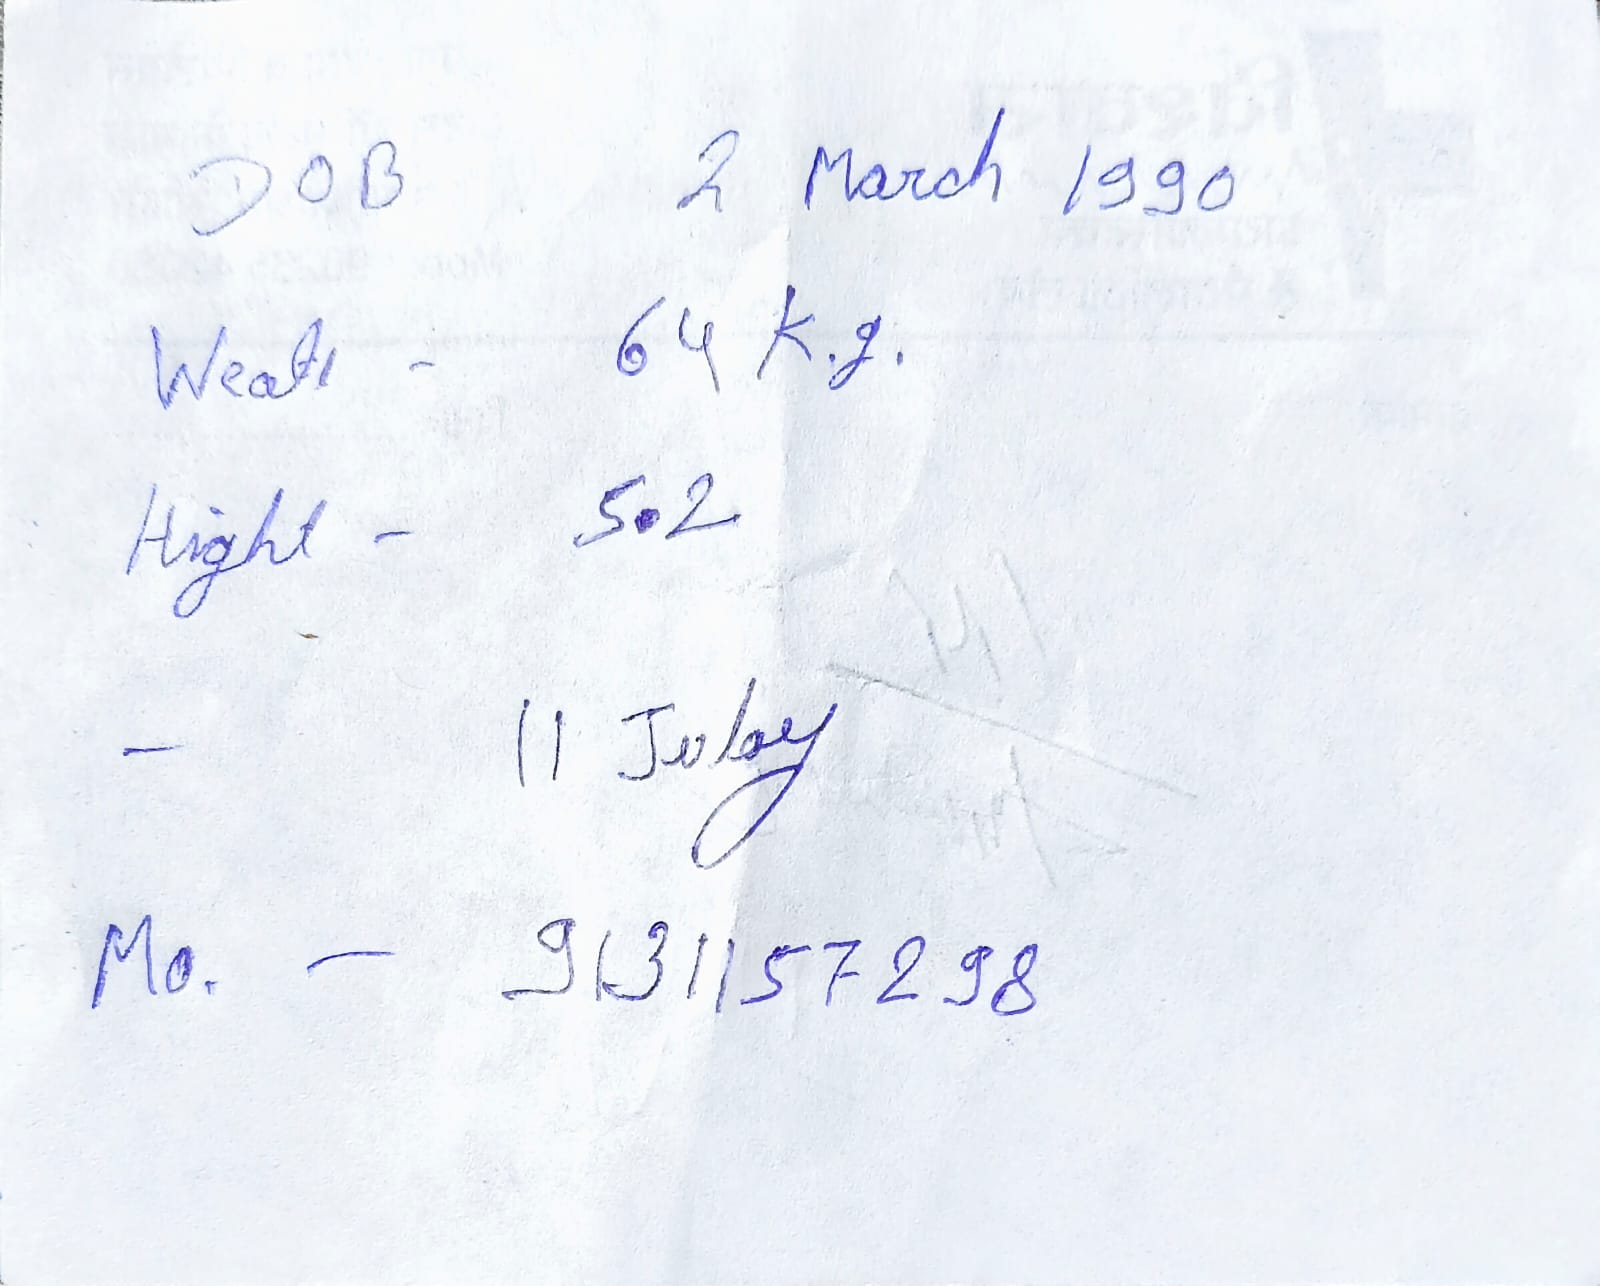 DOB 2 March 1990
Weah - 64 K.g.
Hight - 5.2
- 11 Julay
Mo. - 9131157298